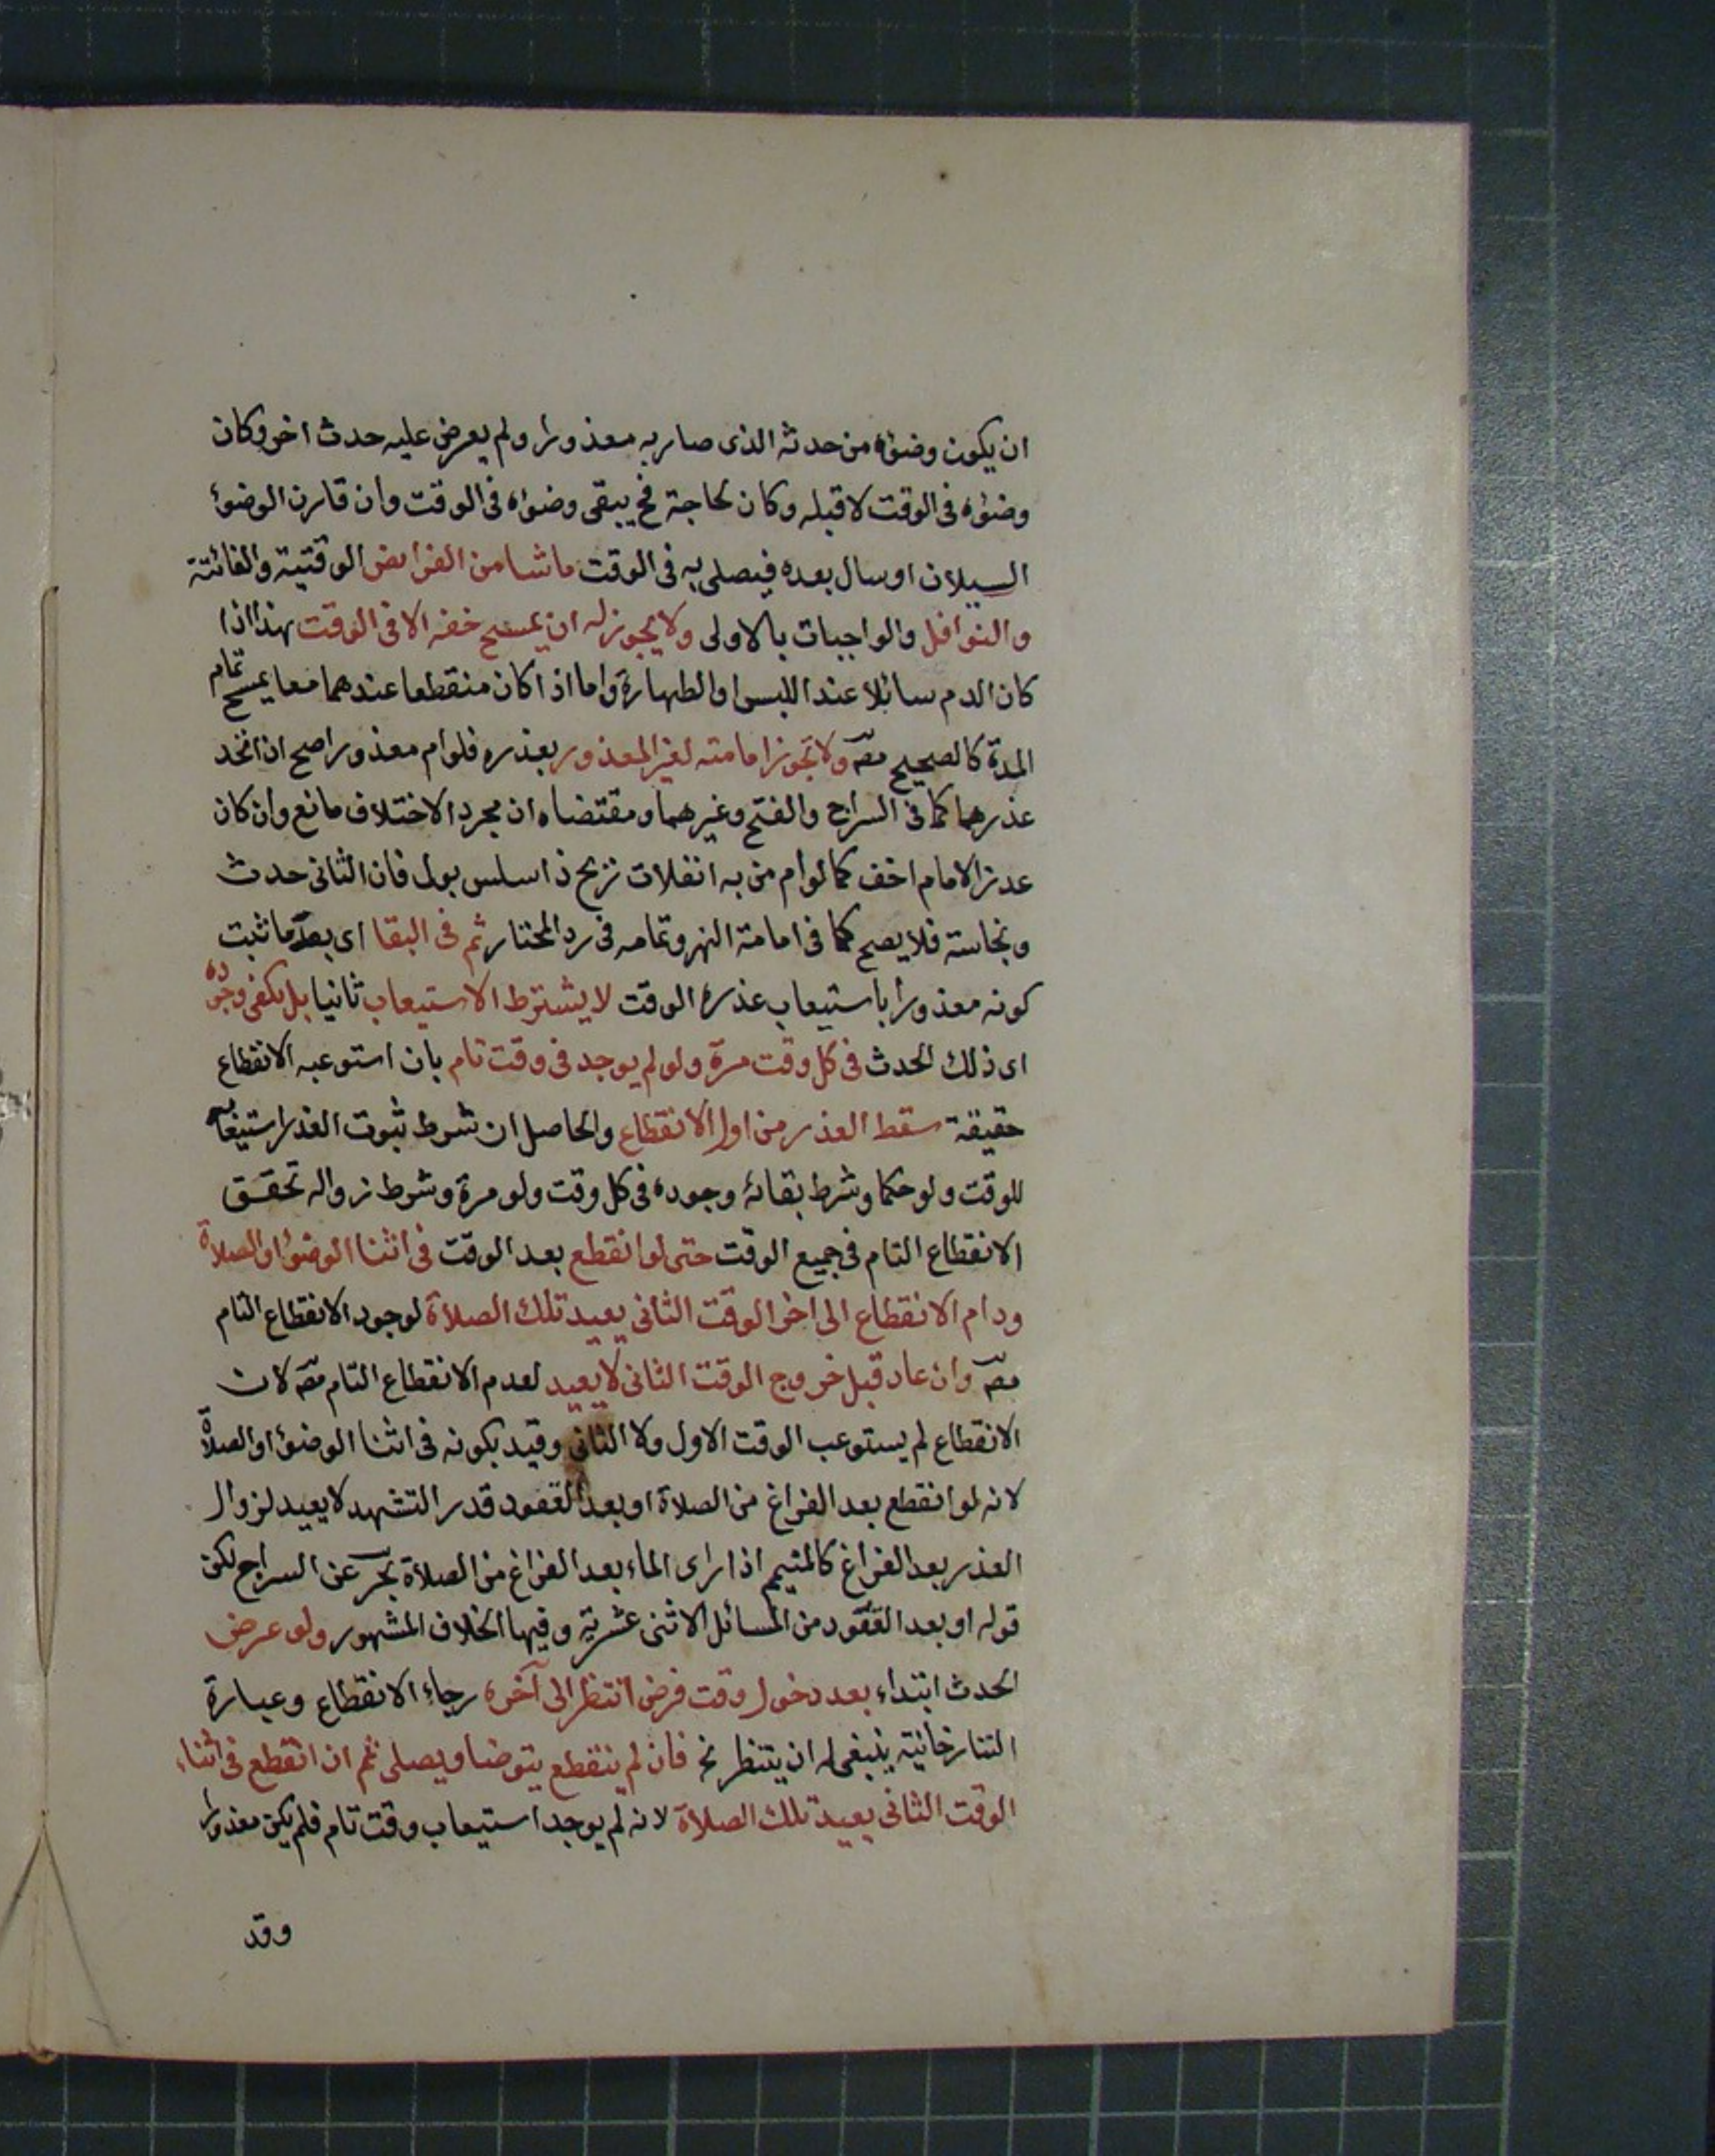 ان يكون وضوءه من حدثه الذى صار به معذورا ولم يعرض عليه حدث اخر وكان
وضوءه فى الوقت لا قبله وكان لحاجة فح يبقى وضوءه فى الوقت وان قارن الوضوء
السيلان او سال بعده فيصلى به فى الوقت ما شا من الفرايض الوقتية والفائتة
والنوافل والواجبات بالاولى ولا يجوز له ان يمسح خفه الا فى الوقت هذا اذا
كان الدم سائلا عند اللبس او الطهارة واما اذا كان منقطعا عندهما معا يمسح تمام
المدة كالصحيح مصـ ولا تجوز امامته لغير المعذور بعذره فلو ام معذورا صح ان اتحد
عذرهما كما فى السراج والفتح وغيرهما ومقتضاه ان مجرد الاختلاف مانع وان كان
عدز الامام اخف كما لو ام من به انفلات نريح ذا سلس بول فان الثانى حدث
ونجاسته فلا يصح كما فى امامة النهر وتمامه فى رد المحتار ثم فى البقا اى بعد ما ثبت
كونه معذورا باستيعاب عذره الوقت لا يشترط الاستيعاب ثانيا بل يكفى وجوده
اى ذلك الحدث فى كل وقت مرة ولو لم يوجد فى وقت تام بان استوعبه الانقطاع
حقيقة سقط العذر من اول الانقطاع والحاصل ان شرط ثبوت العذر استيعابه
للوقت ولو حكما وشرط بقائه وجوده فى كل وقت ولو مرة وشرط زواله تحقق
الانقطاع التام فى جميع الوقت حتى لو انقطع بعد الوقت فى اثنا الوضوء او الصلاة
ودام الانقطاع الى اخر الوقت الثانى يعيد تلك الصلاة لوجود الانقطاع التام
مصـ وان عاد قبل خروج الوقت الثانى لا يعيد لعدم الانقطاع التام مصـ لان
الانقطاع لم يستوعب الوقت الاول ولا الثانى وقيد بكونه فى اثنا الوضوء او الصلاة
لانه لو انقطع بعد الفراغ من الصلاة او بعد القعود قدر التشهد لا يعيد لزوال
العذر بعد الفراغ كالمتيمم اذا راى الماء بعد الفراغ من الصلاة بحر عن السراج لكن
قوله او بعد القعود من المسائل الاثنى عشرية وفيها الخلاف المشهور ولو عرض
الحدث ابتداء بعد دخول وقت فرض انتظر الى آخره رجاء الانقطاع وعبارة
التتارخانية ينبغى له ان ينتظر نخ فان لم ينقطع يتوضا ويصلى ثم ان انقطع فى اثناء
الوقت الثانى يعيد تلك الصلاة لانه لم يوجد استيعاب وقت تام فلم يكن معذورا
وقد